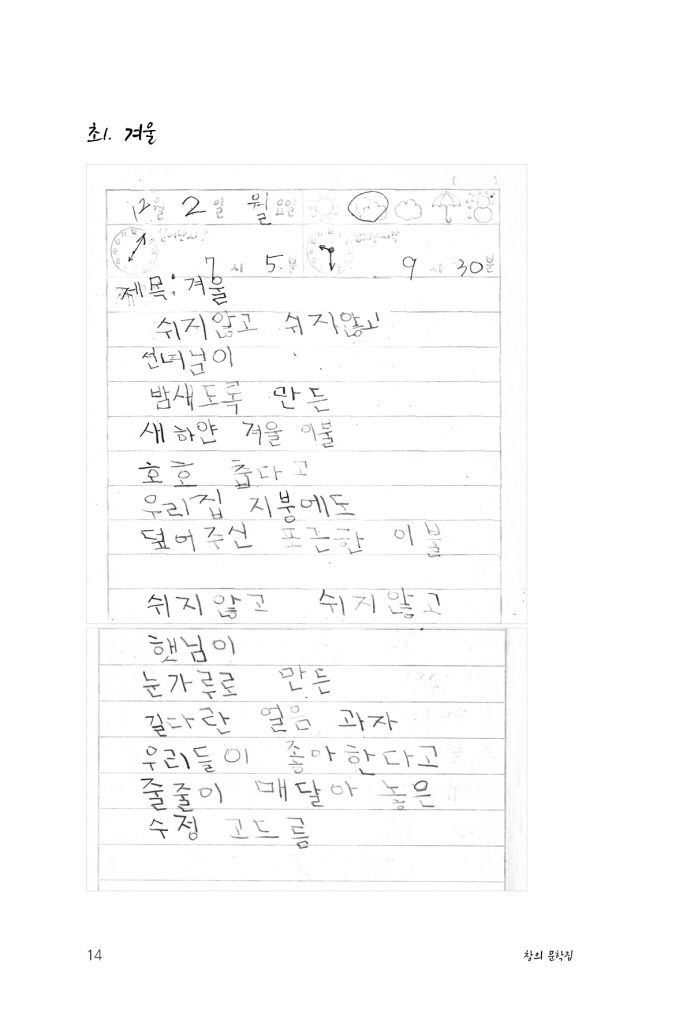 초1. 겨울
( )
12월 2일 월요일
일어난시각 잠자는시각
7시 5분 9시 30분
제목:겨울
쉬지않고 쉬지않고
선녀님이
밤새도록 만든
새하얀 겨울 이불
호호 춥다고
우리집 지붕에도
덮어주신 포근한 이불
쉬지않고 쉬지않고
햇님이
눈가루로 만든
길다란 얼음 과자
우리들이 좋아한다고
줄줄이 매달아 놓은
수정 고드름
14
창의 문학집